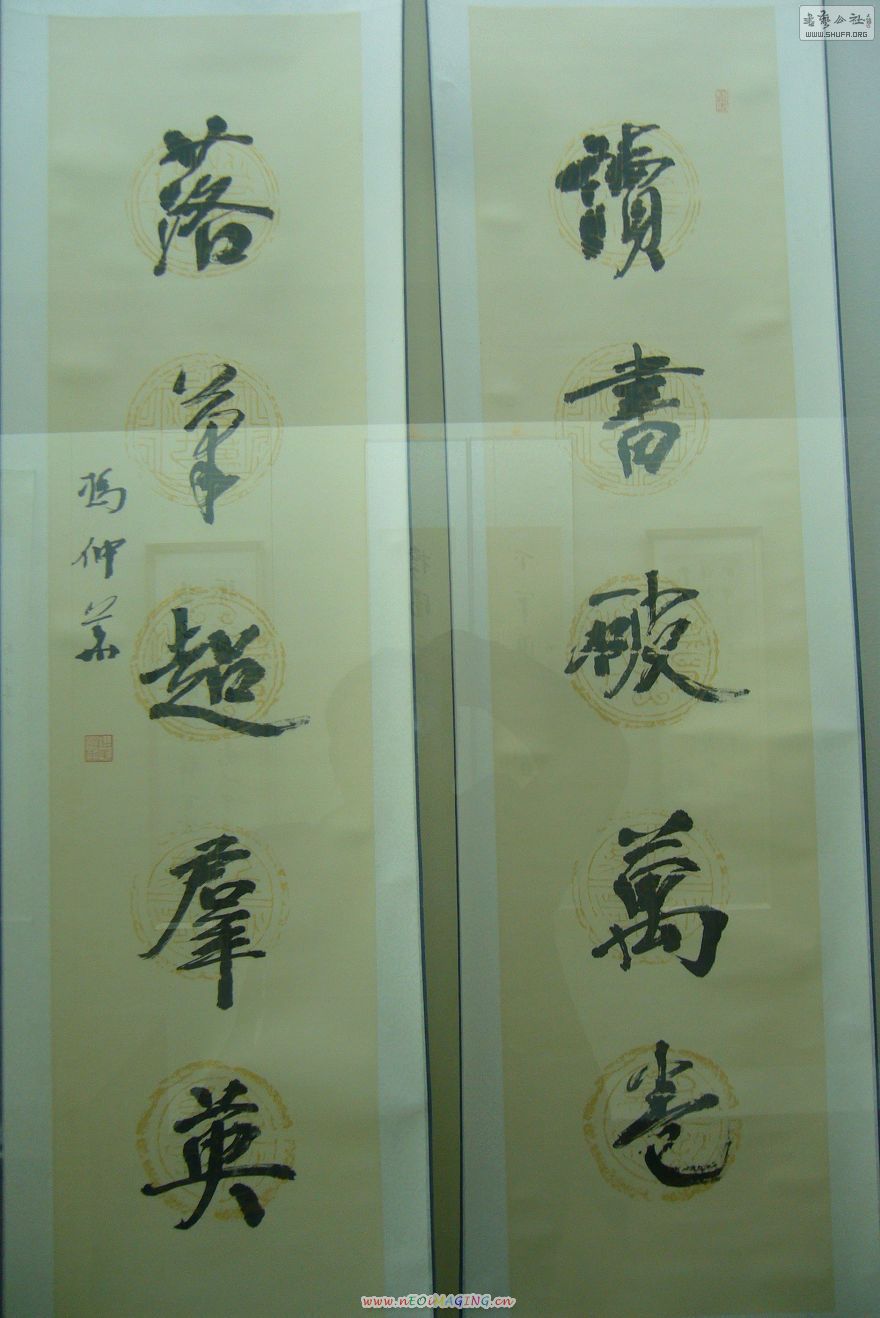 讀書破萬卷
落筆超羣英
馮仲華
書藝公社
WWW.SHUFA.ORG
www.nEOiMAGING.cn